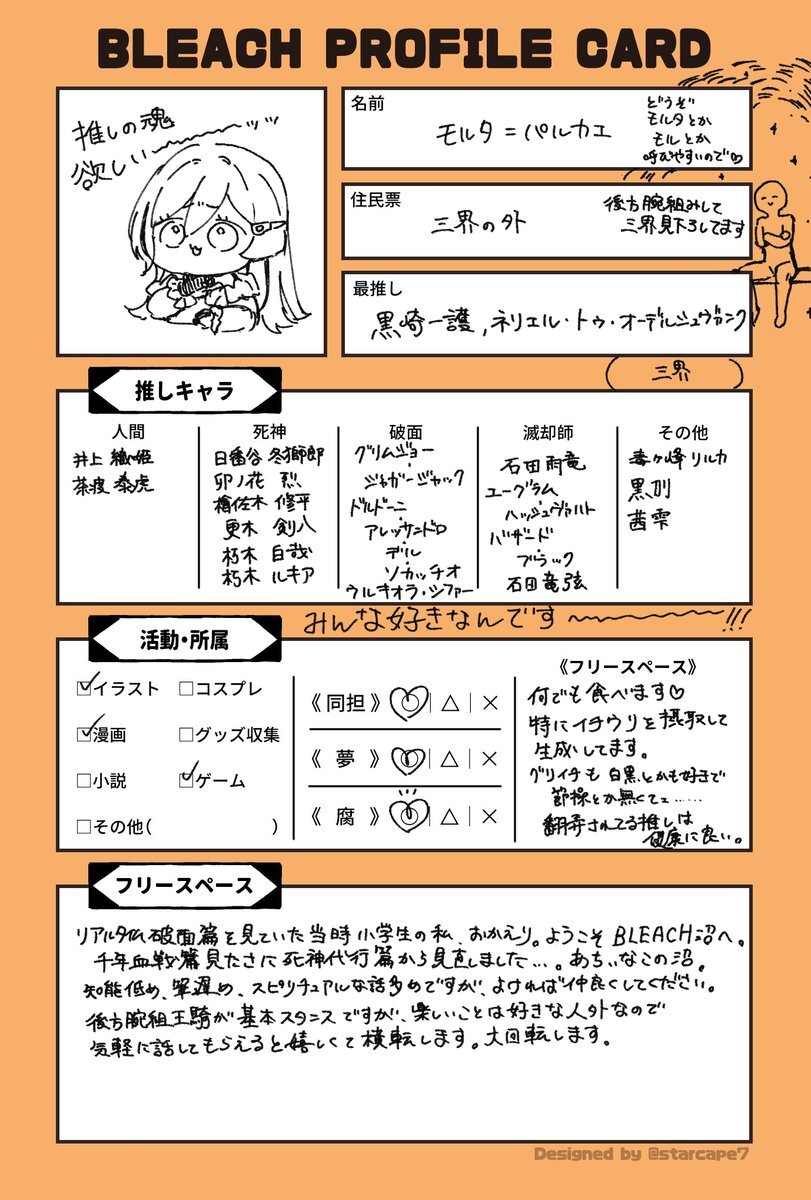 BLEACH PROFILE CARD
推しの魂
欲しい〜〜ッッ
名前
モルタ=パルカエ
どうぞ
モルタとか
モルとか
呼びやすいので♡
住民票
三界の外
後方腕組みして
三界見下ろしてます
最推し
黒崎一護,ネリエル・トゥ・オーデルシュヴァンク
三界
推しキャラ
人間
井上 織姫
茶渡 泰虎
死神
日番谷 冬獅郎
卯ノ花 烈
檜佐木 修平
更木 剣八
朽木 白哉
朽木 ルキア
破面
グリムジョー・
ジャガージャック
ドルドーニ・
アレッサンドロ・
デル・
ソカッチオ
ウルキオラ・シファー
滅却師
石田雨竜
ユーグラム・
ハッシュヴァルト
バザード・
ブラック
石田竜弦
その他
毒ヶ峰リルカ
黒刖
茜雫
みんな好きなんです〜〜!!!
活動・所属
☑イラスト □コスプレ
☑漫画 □グッズ収集
□小説 ☑ゲーム
□その他( )
《同担》○|△|×
《夢》○|△|×
《腐》○|△|×
《フリースペース》
何でも食べます♡
特にイチウリを摂取して
生成してます。
グリイチも白黒とかも好きで
節操とか無くてェ……
翻弄されてる推しは
健康に良い。
フリースペース
リアルタイム破面篇を見ていた当時小学生の私、おかえり。ようこそBLEACH沼へ。
千年血戦篇見たさに死神代行篇から見直しました…。あちぃなこの沼。
知能低め、筆遅め、スピリチュアルな話多めですが、よければ仲良くしてください。
後方腕組王騎が基本スタンスですが、楽しいことは好きな人外なので
気軽に話してもらえると嬉しくて横転します。大回転します。
Designed by @starcape7